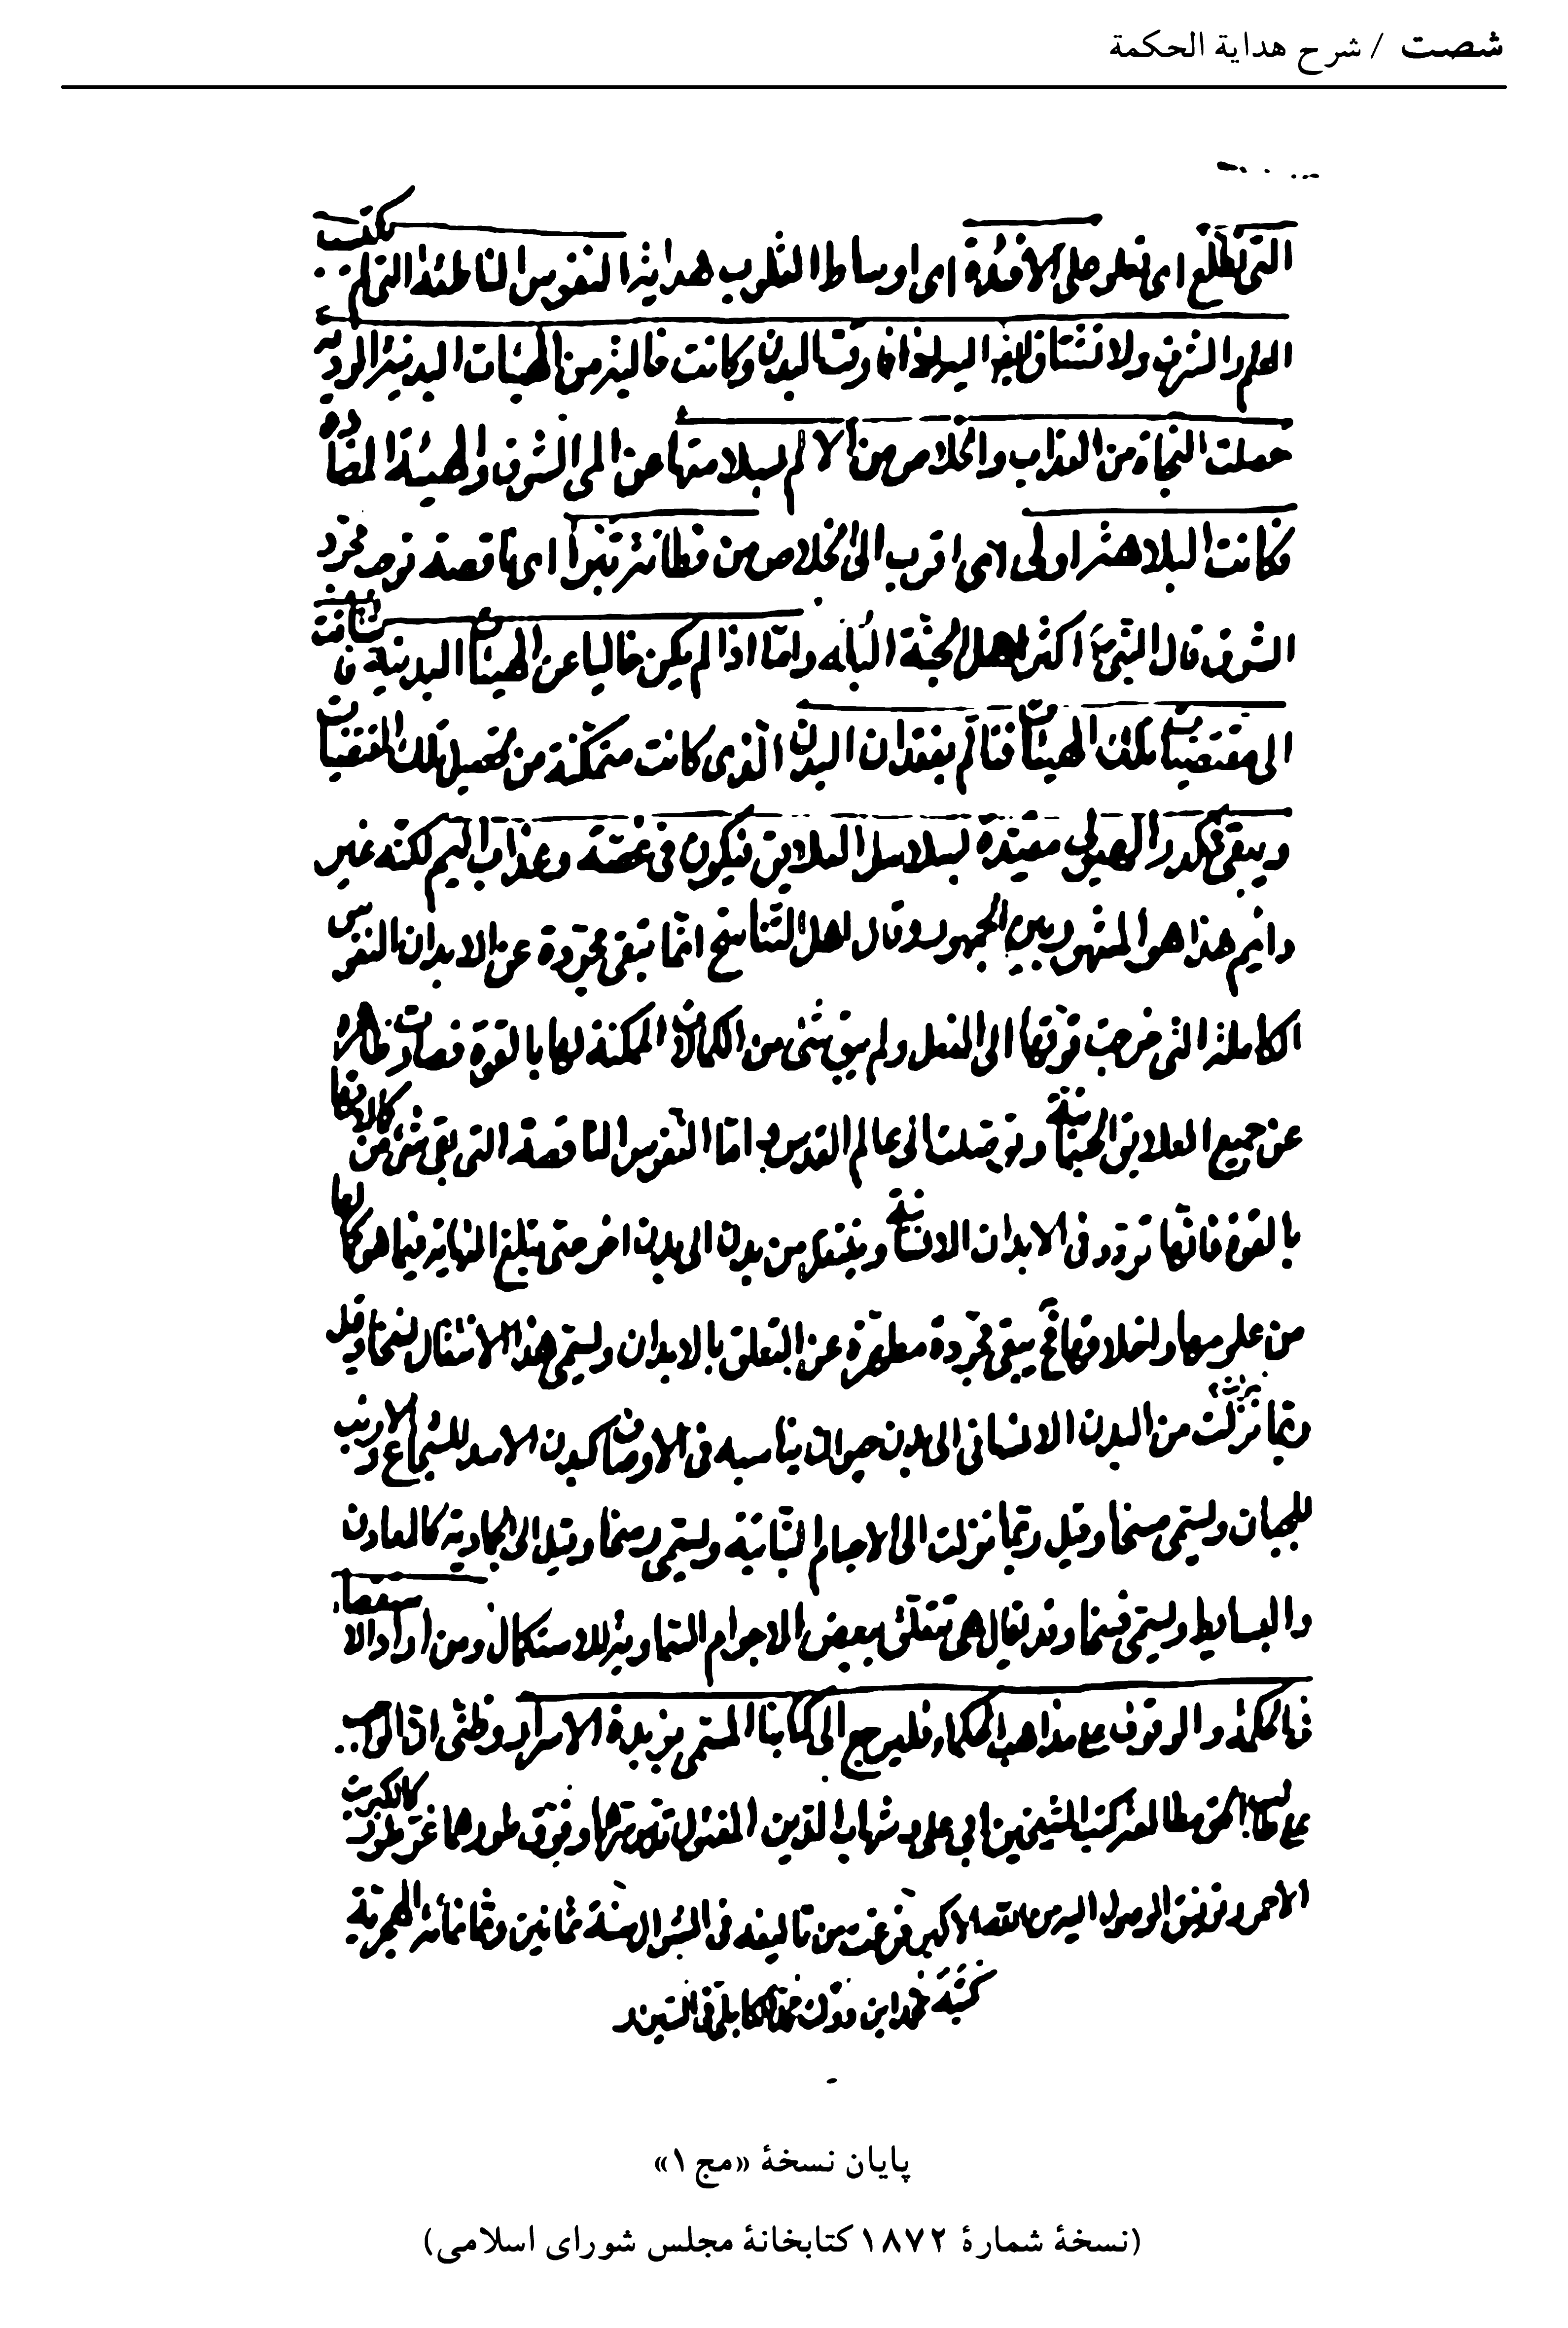 شصت / شرح هداية الحكمة
التى تطلع اى تعلو على الافئدة اى اوساط القلوب هداية النفوس الناطقة التى لم تكتسب
العلم والشرف ولا تشتاق ايضا اليه اذا فارقت البدن وكانت خالية من الهيئات البدنية الردية
حصلت النجاة من العذاب والخلاص من الالم لسلامتها عن الم الشوق والهيئة المضادة
فكانت البلاهة اولى اى اقرب الى الخلاص من فطانة بتراء اى ناقصة توجب مجرد
الشوق قال النبى اكثر اهل الجنة البله واما اذا لم يكن خاليا عن الهيئات البدنية فاشتاقت
الى مقتضيات تلك الهيئات فتالم بفقدان البدن الذى كانت متمكنة من تحصيل تلك المقتضيات
ويبقى فى كدر الهيولى مقيدة بسلاسل العلايق فيكون فى غصة وعذاب اليم لكنه غير
دايم هذا هو المشهور بين الجمهور وقال اهل التناسخ انما تبقى مجردة عن الابدان النفوس
الكاملة التى خرجت قوتها الى الفعل ولم يبق شئ من الكمالات الممكنة لها بالقوة فصارت طاهرة
عن جميع العلايق الجسمانية وتوصلت الى عالم القدس واما النفوس الناقصة التى بقى شئ من كمالاتها
بالقوة فانها تردد فى الابدان الانسانية وينتقل من بدن الى بدن اخر حتى تبلغ النهاية فيما هو كمالها
من علومها واخلاقها فح يبقى مجردة مطهرة عن التعلق بالابدان ويسمى هذا الانتقال نسخا وقيل
ربما نزلت من البدن الانسانى الى بدن حيوان يناسبه فى الاوصاف كبدن الاسد للشجاع والارنب
للجبان ويسمى مسخا وقيل ربما نزلت الى الاجسام النباتية ويسمى رسخا وقيل الى الجمادية كالمعادن
والبسايط ويسمى فسخا وقد يقال هى تتعلق ببعض الاجرام السماوية للاستكمال ومن اراد الاستقصاء
فى الحكمة والوقوف على مذاهب الحكماء فليرجع الى كتابنا المسمى بزبدة الاسرار وظنى ان الواجب
على طالب الحق مطالعة كتب الشيخين ابى على وشهاب الدين المقتول وفوق طورهما طور كالكبريت
الاحمر وتوفيق الوصول اليه من الله الاكبر فرغت من تاليفه فى سنة ثمانين وثمانمائة الهجرية
كتبه محمد ابن دولت محمد الكابلى فى
پایان نسخهٔ «مج ۱»
(نسخهٔ شمارهٔ ۱۸۷۲ کتابخانهٔ مجلس شورای اسلامی)